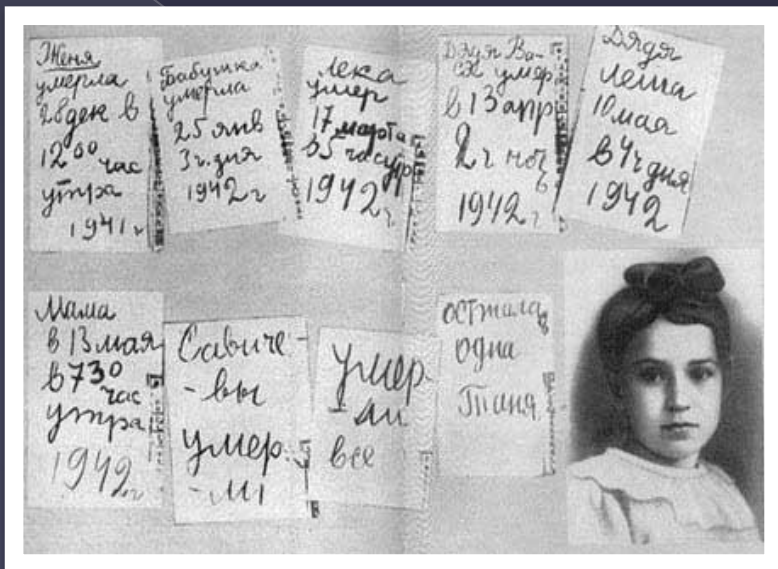 Женя
умерла
28 дек в
12 00 час
утра
1941 г
Бабушка
умерла
25 янв
3 ч. дня
1942 г
Лека
умер
17 марта
в 5 час утр
1942 г.
Дядя Ва-
ся умер
в 13 апр
2 ч ноч
ь
1942 г
Дядя
Леша
10 мая
в 4 ч дня
1942
Мама
в 13 мая
в 7 30
час
утра
1942 г
Савиче-
-вы
умер-
-ли
умер-
-ли
все
Осталась
одна
Таня